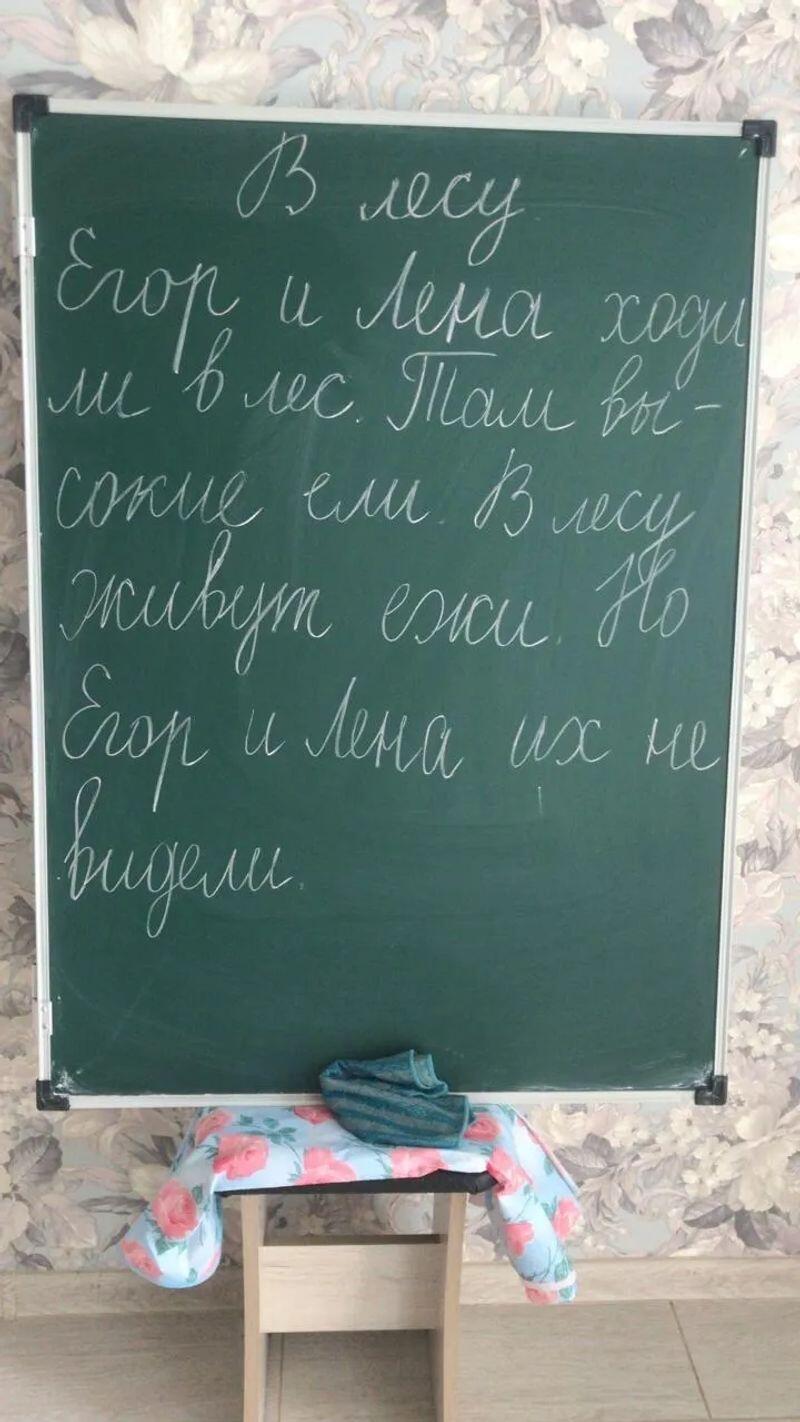 В лесу
Егор и Лена ходи
ли в лес. Там вы-
сокие ели. В лесу
живут ежи. Но
Егор и Лена их не
видели.